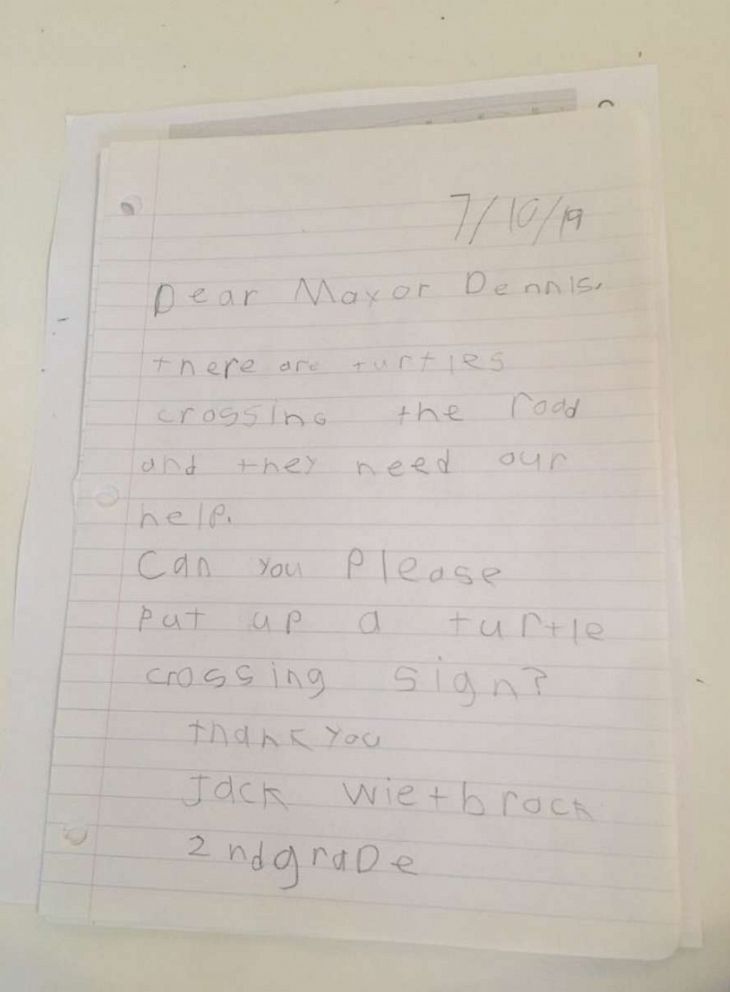 7/10/19
Dear Mayor Dennis.
there are turtles
crossing the road
and they need our
help.
Can you Please
put up a turtle
crossing sign?
thank you
Jack Wietbrock
2ndgraDe